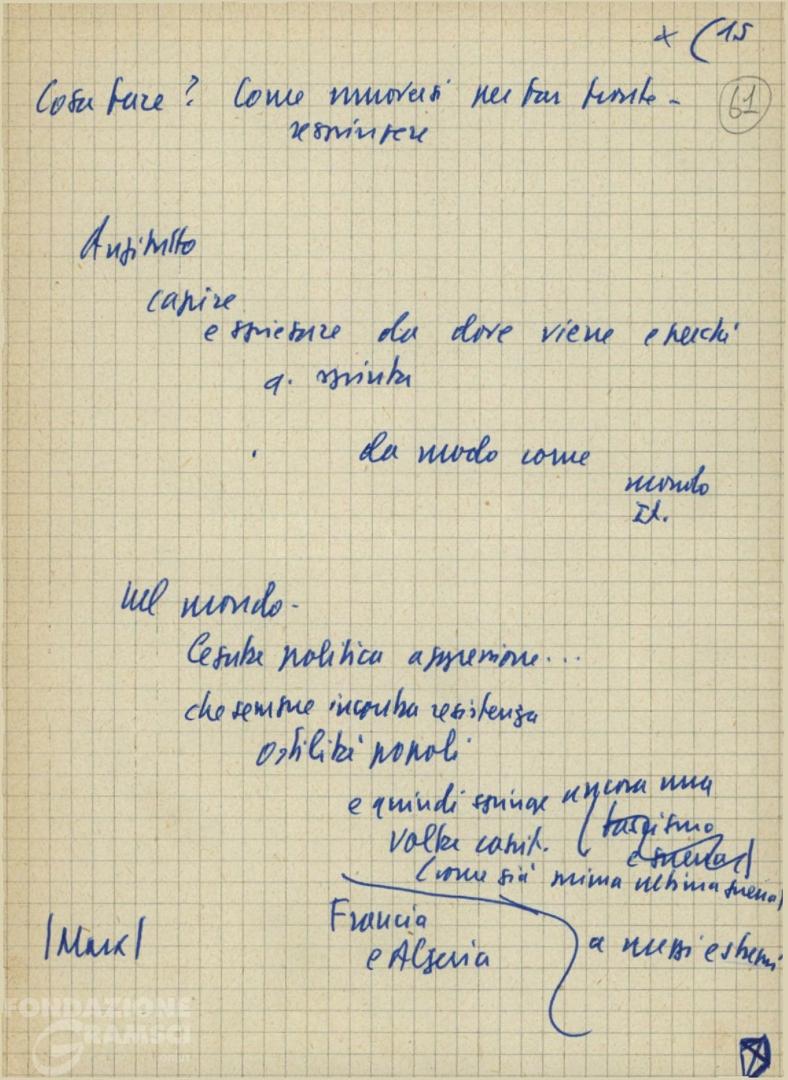 x (15
61
Cosa fare? Come muoversi per far fronte -
respingere
Anzitutto
capire
e spiegare da dove viene e perché
q. spinta
da modo come
mondo
It.
Nel mondo -
politica aggressione...
che sempre incontra resistenza
ostilità popoli
e quindi spinge ancora una
volta capit. (fascismo
e guerra)
(come già prima ultima guerra)
Francia
e Algeria
a mezzi estremi
|Marx|
FONDAZIONE
GRAMSCI